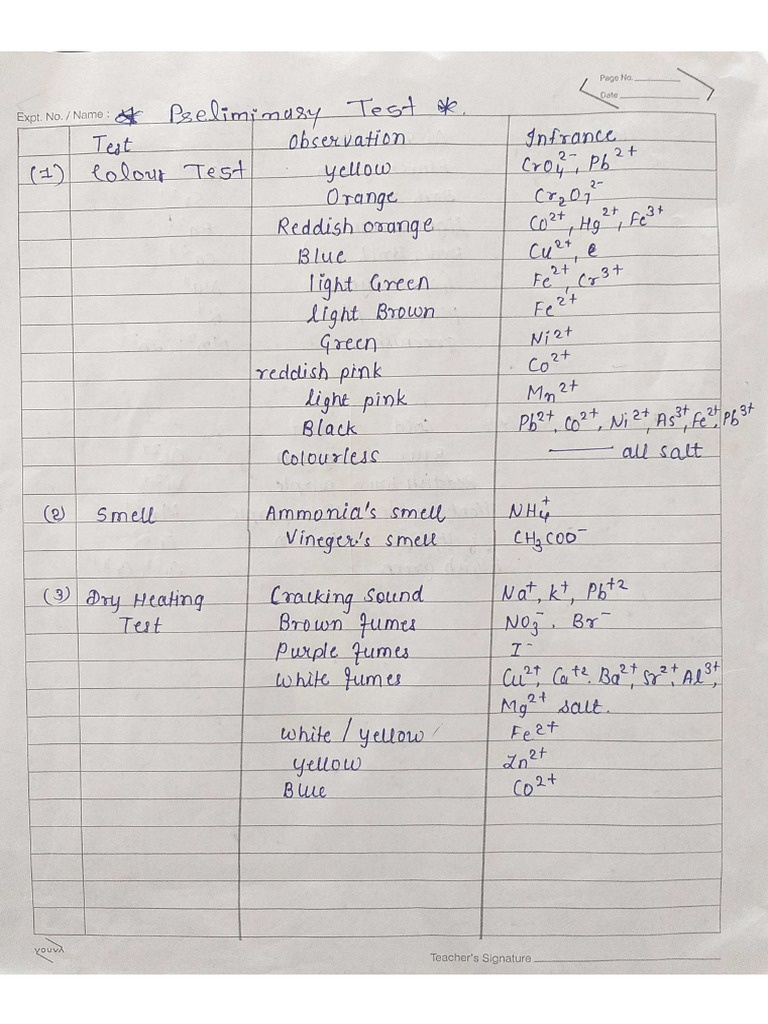 Page No.
Date
Expt. No. / Name : * Preliminary Test *.
Test Observation Infrance
(1) Colour Test yellow CrO4^2-, Pb^2+
Orange Cr2O7^2-
Reddish orange Co^2+, Hg^2+, Fe^3+
Blue Cu^2+,
light Green Fe^2+, Cr^3+
light Brown Fe^2+
Green Ni^2+
reddish pink Co^2+
light pink Mn^2+
Black Pb^2+, Co^2+, Ni^2+, As^3+, Fe^2+, Pb^3+
Colourless —— all salt
(2) Smell Ammonia's smell NH4^+
Vineger's smell CH3COO^-
(3) Dry Heating Cracking Sound Na^+, K^+, Pb^+2
Test Brown fumes NO3^-. Br^-
Purple fumes I^-
White fumes Cu^2+, Ca^+2. Ba^2+, Sr^2+, Al^3+,
Mg^2+ salt.
White / yellow Fe^2+
yellow Zn^2+
Blue Co^2+
YOUVA
Teacher's Signature